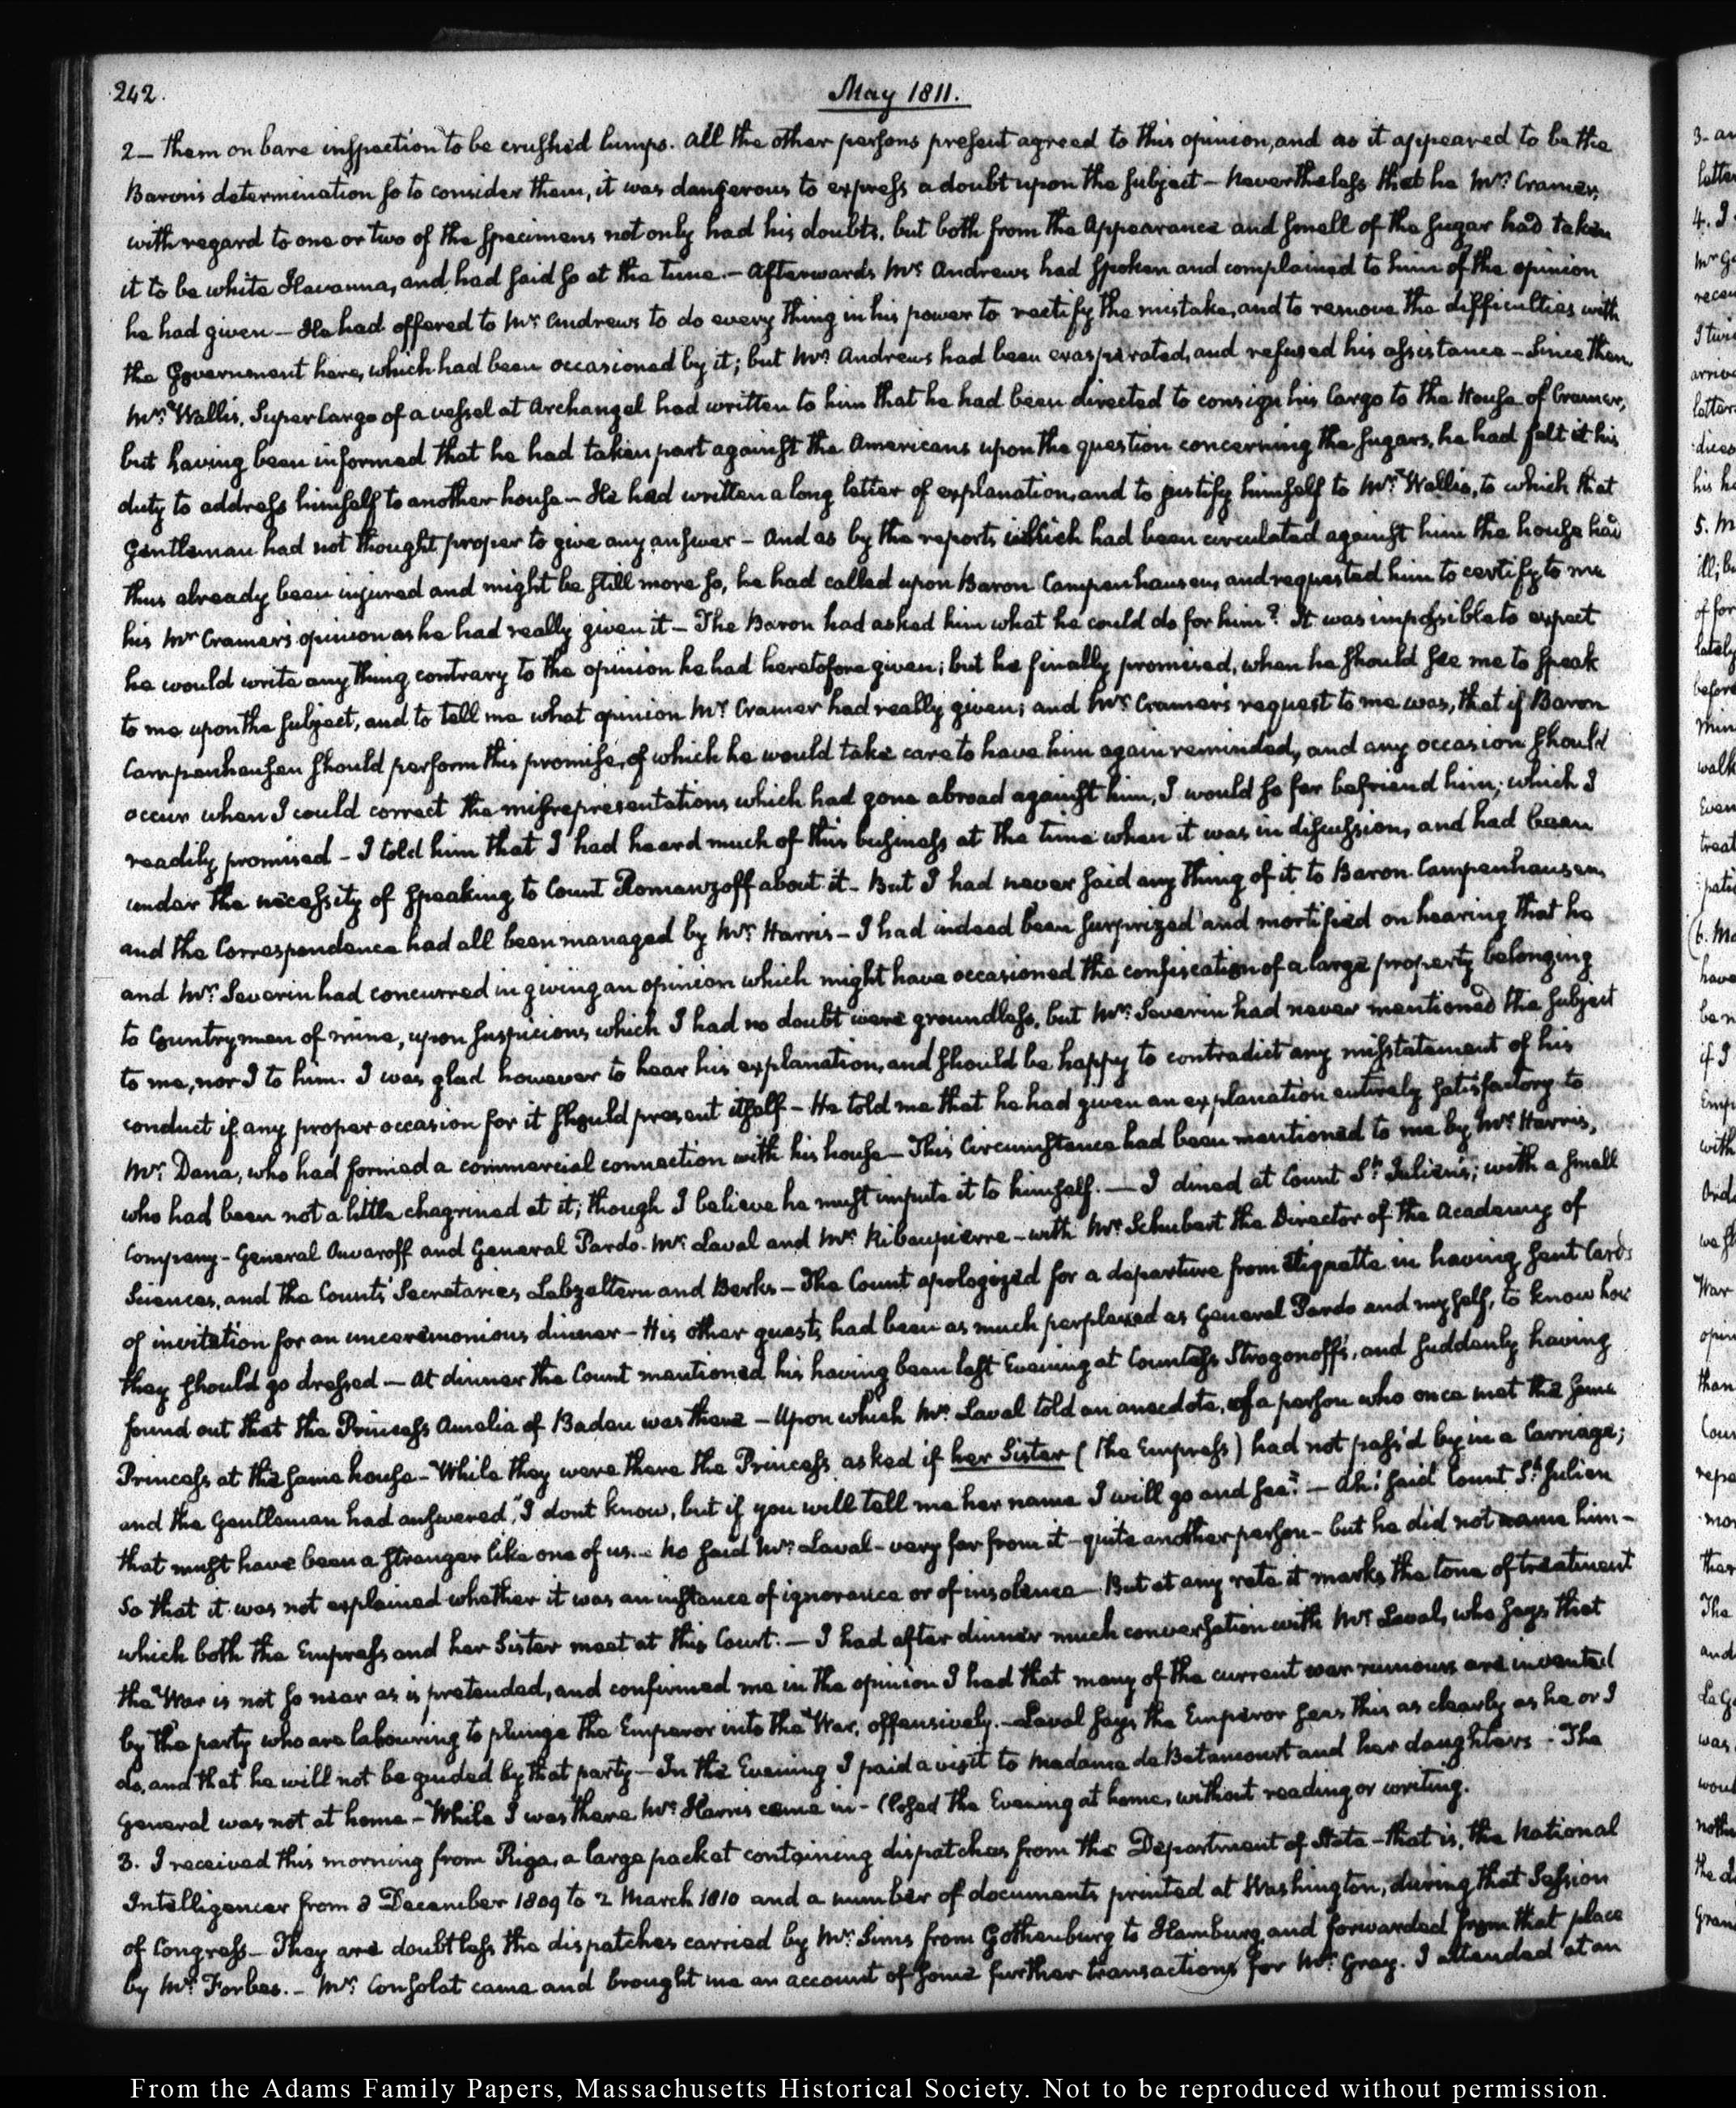 242.
May 1811.
2 — them on bare inspection to be crushed lumps. All the other persons present agreed to this opinion, and as it appeared to be the
Baron's determination so to consider them, it was dangerous to express a doubt upon the subject — Nevertheless that he Mr. Cramer,
with regard to one or two of the specimens not only had his doubts, but both from the Appearance and smell of the sugar had taken
it to be white Havanna, and had said so at the time. — Afterwards Mr. Andrews had spoken and complained to him of the opinion
he had given — He had offered to Mr. Andrews to do every thing in his power to rectify the mistake, and to remove the difficulties with
the Government here, which had been occasioned by it; but Mr. Andrews had been exasperated, and refused his assistance — Since then
Mr. Wallis, Supercargo of a vessel at Archangel had written to him that he had been directed to consign his Cargo to the House of Cramer,
but having been informed that he had taken part against the Americans upon the question concerning the sugars, he had felt it his
duty to address himself to another house — He had written a long letter of explanation, and to justify himself to Mr. Wallis, to which that
Gentleman had not thought proper to give any answer — And as by the reports which had been circulated against him the house had
thus already been injured and might be still more so, he had called upon Baron Campenhausen, and requested him to certify to me
his Mr Cramer's opinion as he had really given it — The Baron had asked him what he could do for him? It was impossible to expect
he would write any thing contrary to the opinion he had heretofore given; but he finally promised, when he should see me to speak
to me upon the subject, and to tell me what opinion Mr. Cramer had really given; and Mr. Cramer's request to me was, that if Baron
Campenhausen should perform this promise, of which he would take care to have him again reminded, and any occasion should
occur when I could correct the misrepresentations which had gone abroad against him, I would so far befriend him; which I
readily promised — I told him that I had heard much of this business at the time when it was in discussion, and had been
under the necessity of speaking to Count Romanzoff about it — But I had never said any thing of it to Baron Campenhausen,
and the Correspondence had all been managed by Mr. Harris — I had indeed been surprized and mortified on hearing that he
and Mr. Severin had concurred in giving an opinion which might have occasioned the confiscation of a large property belonging
to Countrymen of mine, upon suspicions which I had no doubt were groundless, but Mr. Severin had never mentioned the subject
to me, nor I to him. I was glad however to hear his explanation, and should be happy to contradict any misstatement of his
conduct if any proper occasion for it should present itself — He told me that he had given an explanation entirely satisfactory to
Mr. Dana, who had formed a commercial connection with his house — This Circumstance had been mentioned to me by Mr. Harris,
who had been not a little chagrined at it; though I believe he must impute it to himself. — I dined at Count St. Julien's; with a small
Company — General Ouvaroff and General Pardo — Mr. Laval and Mr. Ribaupierre — with Mr. Schubert the Director of the Academy of
Sciences, and the Count's Secretaries Lebzeltern and Berks — The Count apologized for a departure from Etiquette in having sent Cards
of invitation for an unceremonious dinner — His other guests had been as much perplexed as General Pardo and myself, to know how
they should go dressed — At dinner the Count mentioned his having been last Evening at Countess Strogonoff's, and suddenly having
found out that the Princess Amelia of Baden was there — Upon which Mr. Laval told an anecdote, of a person who once met the same
Princess at the same house — While they were there the Princess asked if her Sister (the Empress) had not pass'd by in a Carriage;
and the Gentleman had answered, "I dont know, but if you will tell me her name I will go and see." — Ah! said Count St. Julien
that must have been a stranger like one of us. — No said Mr. Laval — very far from it — quite another person — but he did not name him —
So that it was not explained whether it was an instance of ignorance or of insolence — But at any rate it marks the tone of treatment
which both the Empress and her Sister meet at this Court. — I had after dinner much conversation with Mr. Laval, who says that
the War is not so near as is pretended, and confirmed me in the opinion I had that many of the current war rumours are invented
by the party who are labouring to plunge the Emperor into the War, offensively. — Laval says the Emperor sees this as clearly as he or I
do, and that he will not be guided by that party — In the Evening I paid a visit to Madame de Betancourt and her daughters — The
General was not at home — While I was there Mr. Harris came in — Closed the Evening at home, without reading or writing.
3. I received this morning from Riga, a large packet containing dispatches from the Department of State — that is, the National
Intelligencer from 8 December 1809 to 2 March 1810 and a number of documents printed at Washington, during that Session
of Congress — They are doubtless the dispatches carried by Mr. Sims from Gothenburg to Hamburg and forwarded from that place
by Mr. Forbes. — Mr. Consolat came and brought me an account of some further transactions for Mr. Gray. I attended at an
From the Adams Family Papers, Massachusetts Historical Society. Not to be reproduced without permission.